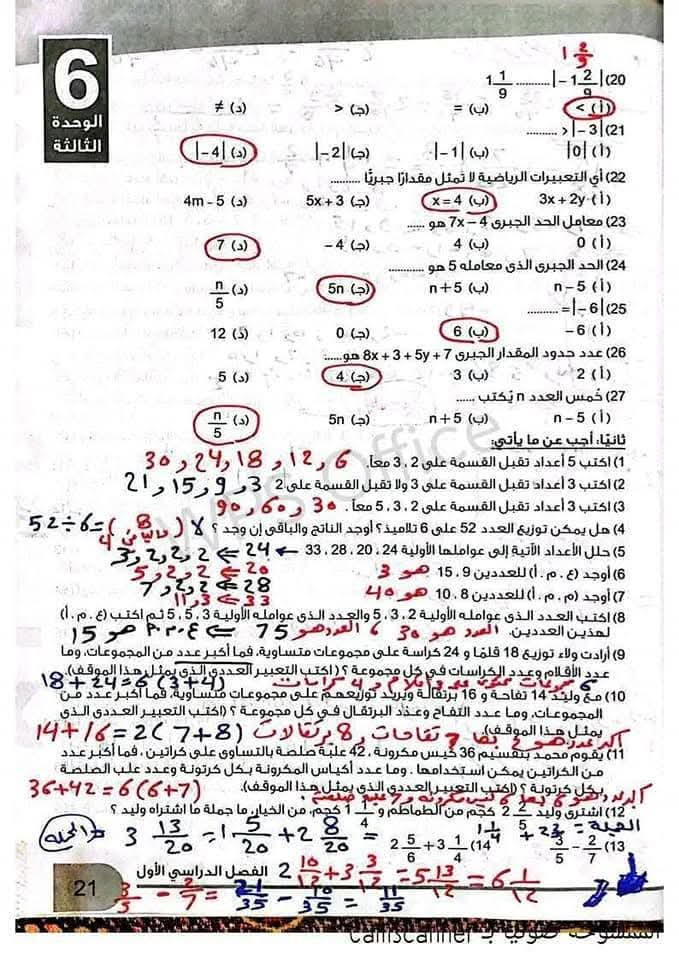 6
الوحدة
الثالثة
1 2/9
20) |-1 2/9| .......... 1 1/9
(أ) > (ب) = (جـ) < (د) ≠
21) |-3| > ..........
(أ) |0| (ب) |-1| (جـ) |-2| (د) |-4|
22) أي التعبيرات الرياضية لا تُمثل مقدارًا جبريًا ..........
(أ) 3x + 2y (ب) x = 4 (جـ) 5x + 3 (د) 4m - 5
23) معامل الحد الجبرى 7x - 4 هو ......
(أ) 0 (ب) 4 (جـ) -4 (د) 7
24) الحد الجبرى الذى معامله 5 هو ............
(أ) n - 5 (ب) n + 5 (جـ) 5n (د) n/5
25) |-6| = ..........
(أ) -6 (ب) 6 (جـ) 0 (د) 12
26) عدد حدود المقدار الجبرى 8x + 3 + 5y + 7 هو......
(أ) 2 (ب) 3 (جـ) 4 (د) 5
27) خُمس العدد n يُكتب ......
(أ) n - 5 (ب) n + 5 (جـ) 5n (د) n/5
ثانيًا: أجب عن ما يأتي:
1) اكتب 5 أعداد تقبل القسمة على 2 ، 3 معاً. 6 , 12 , 18 , 24 , 30
2) اكتب 3 أعداد تقبل القسمة على 3 ولا تقبل القسمة على 2 3 , 9 , 15 , 21
3) اكتب 3 أعداد تقبل القسمة على 2 ، 3 ، 5 معاً . 30 , 60 , 90
4) هل يمكن توزيع العدد 52 على 6 تلاميذ؟ أوجد الناتج والباقى إن وجد ؟ لا 52 ÷ 6 = (8 والباقى 4)
5) حلل الأعداد الآتية إلى عواملها الأولية 24 ، 20 ، 28 ، 33 ← 24 ⇐ 2 , 2 , 2 , 3
20 ⇐ 2 , 2 , 5
6) أوجد (ع . م . أ) للعددين 9 ، 15 هو 3
28 ⇐ 2 , 2 , 7
7) أوجد (م . م . أ) للعددين 8 ، 10 هو 40
33 ⇐ 3 , 11
8) اكتب العدد الذى عوامله الأولية 2 ، 3 ، 5 والعدد الذى عوامله الأولية 3 ، 5 ، 5 ثم اكتب (ع . م . أ)
لهذين العددين. العدد هو 30 6 العدد هو 75 ⇐ ع.م.أ هو 15
9) أرادت ولاء توزيع 18 قلمًا و 24 كراسة على مجموعات متساوية، فما أكبر عدد من المجموعات، وما
عدد الأقلام وعدد الكراسات في كل مجموعة ؟ (اكتب التعبير العددى الذى يمثل هذا الموقف).
18 + 24 = 6 (3 + 4)
10) مع وليد 14 تفاحة و 16 برتقالة ويريد توزيعهم على مجموعات متساوية، فما أكبر عدد من
المجموعات، وما عدد التفاح وعدد البرتقال في كل مجموعة ؟ (اكتب التعبير العددى الذى
يمثل هذا الموقف).
7 تفاحات , 8 برتقالات 14 + 16 = 2 (7 + 8)
11) يقوم محمد بتقسيم 36 كيس مكرونة ، 42 علبة صلصة بالتساوى على كراتين ، فما أكبر عدد
من الكراتين يمكن استخدامها . وما عدد أكياس المكرونة بكل كرتونة وعدد علب الصلصة
بكل كرتونة ؟ (اكتب التعبير العددى الذى يمثل هذا الموقف).
36 + 42 = 6 (6 + 7)
12) اشترى وليد 2 2/5 كجم من الطماطم و 1 1/4 كجم من الخيار، ما جملة ما اشتراه وليد ؟
1 1/4 + 2 2/5 = 1 5/20 + 2 8/20 = 3 13/20
13) 3/5 - 2/7 14) 2 5/6 + 3 1/4
2 10/12 + 3 3/12 = 5 13/12 = 6 1/12
الفصل الدراسي الأول
21
3/5 - 2/7 = 21/35 - 10/35 = 11/35
WPS Office
الممسوحة ضوئيا بـ CamScanner